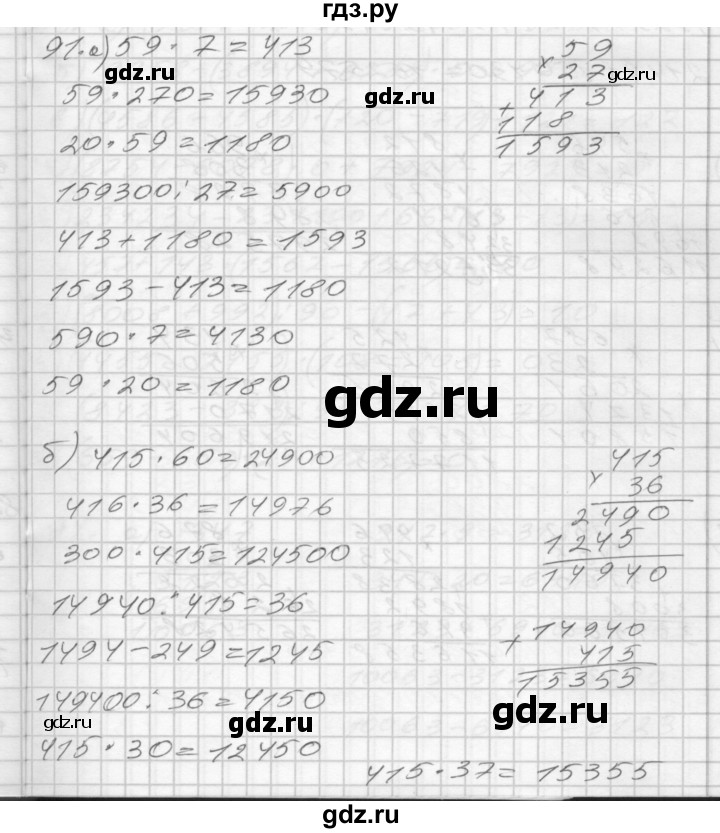 гдз.ру
91. а) 59 · 7 = 413
gdz.ru
59 · 270 = 15930
gdz.ru
20 · 59 = 1180
159300 : 27 = 5900
413 + 1180 = 1593
1593 - 413 = 1180
590 · 7 = 4130
59 · 20 = 1180
× 59
27
gdz.ru
+ 413
118
1593
gdz.ru
б) 415 · 60 = 24900
416 · 36 = 14976
300 · 415 = 124500
14940 : 415 = 36
1494 - 249 = 1245
149400 : 36 = 4150
gdz.ru
gdz.ru
gdz.ru
415 · 30 = 12450
× 415
36
2490
1245
14940
+ 14940
415
15355
415 · 37 = 15355
gdz.ru